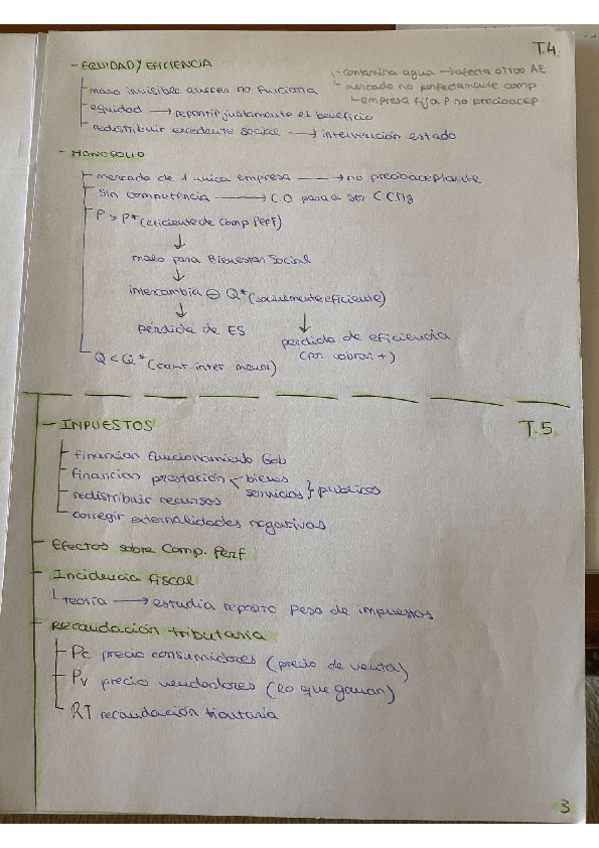 T.4.
- EQUIDAD Y EFICIENCIA
- contamina agua → afecta otros AE
- mercado no perfectamente comp
empresa fija P no precioacep.
mano invisible a veces no funciona
equidad → repartir justamente el beneficio
redistribuir excedente social → intervención estado
- MONOPOLIO
mercado de 1 unica empresa → no precioaceptante
Sin competencia → CO pasa a ser
P > P* (eficiente de Comp Perf)
↓
malo para Bienestar Social
↓
intercambia ⊖ Q* (socialmente eficiente)
↓ ↓
pérdida de ES
perdida de eficiencia
(por cobrar +)
Q < Q* (cant. inter menor)
- IMPUESTOS
T.5.
financian funcionamiento Gob
financian prestación < bienes
servicios } publicos
redistribuir recursos
corregir externalidades negativas
- Efectos sobre Comp. Perf
- Incidencia fiscal
teoría → estudia reparto peso de impuestos
- Recaudación tributaria
Pc precio consumidores (precio de venta)
Pv precio vendedores (lo que ganan)
RT recaudación tributaria
3